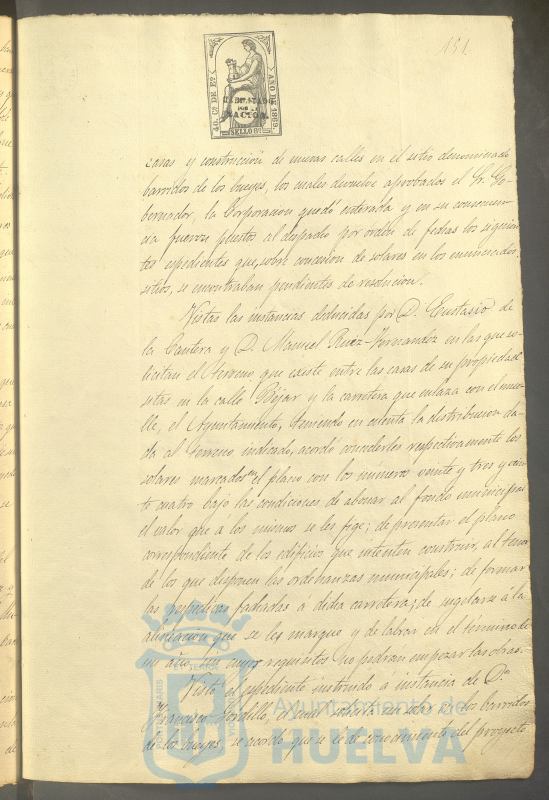 151
10. Cs DE Eo
AÑO DE 1869
HABILITADO
POR LA
NACION.
SELLO 9º
casas y construccion de nuevas calles en el sitio denominado
barridos de los bueyes, los cuales devuelve aprobados el Sr. Go-
bernador, la Corporacion quedó enterada y en su consecuen-
cia fueron puestos al despacho por orden de fechas los siguien-
tes espedientes que, sobre concesion de solares en los enunciados
sitios, se encontraban pendientes de resolucion.
Vistas las instancias deducidas por D. Eustasio de
la Cantera y D. Manuel Ruiz-Fernandez en las que so-
licitan el terreno que existe entre las casas de su propiedad
sitas en la calle Béjar y la carretera que enlaza con el mue-
lle, el Ayuntamiento, teniendo en cuenta la distribucion da-
da al terreno indicado, acordó concederles respectivamente los
solares marcados en el plano con los números veinte y tres y vein-
te cuatro bajo las condiciones de abonar al fondo municipal
el valor que a los mismos se les fige; de presentar el plano
correspondiente de los edificios que intenten construir, al tenor
de los que disponen las ordenanzas municipales; de formar
las respectivas fachadas á dicha carretera; de sugetarse á la
alineacion que se les marque y de labrar en el término de
un año, sin cuyos requisitos no podran empezar las obras.
Visto el espediente instruido á instancia de Dn
Francisco Gordillo, el cual solicita un solar de los barridos
de los bueyes, se acordó que se le dé conocimiento del proyecto
Ayuntamiento de
HUELVA